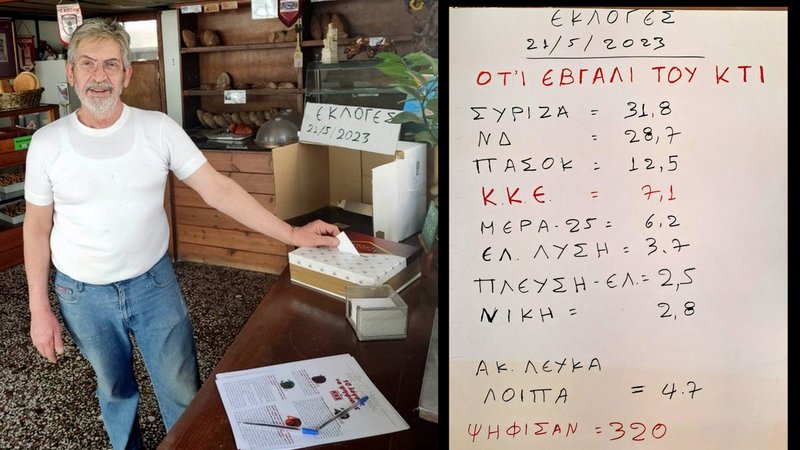 ΕΚΛΟΓΕΣ
21/5/2023
ΕΚΛΟΓΕΣ
21/5/2023
ΟΤΊ ΕΒΓΑΛΙ ΤΟΥ ΚΤΙ
ΣΥΡΙΖΑ = 31,8
ΝΔ = 28,7
ΠΑΣΟΚ = 12,5
Κ.Κ.Ε. = 7,1
ΜΕΡΑ-25 = 6,2
ΕΛ. ΛΥΣΗ = 3.7
ΠΛΕΥΣΗ-ΕΛ.= 2,5
ΝΙΚΗ = 2,8
ΑΚ. ΛΕΥΚΑ
ΛΟΙΠΑ = 4.7
ΨΗΦΙΣΑΝ = 320